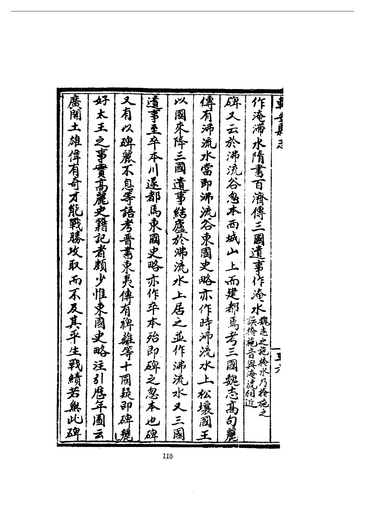 輯安縣志
作淹㴲水隋書百濟傳三國遺事作淹水魏志之施掩水乃掩施之誤掩施音與淹㴲相近
一五六
碑又云於沸流谷忽本西城山上而建都焉考三國魏志高句麗
傳有沸流水當即沸流谷東國史略亦作時沸流水上松壤國王
以國來降三國遺事結廬於沸流水上居之並作沸流水又三國
遺事至卒本川遂都焉東國史略亦作卒本殆即碑之忽本也碑
又有以碑麗不息等語考晉書東夷傳有裨離等十國疑即碑麗
好太王之事實高麗史籍記者頗少惟東國史略注引歷年圖云
廣開土雄偉有奇才能戰勝攻取而不及其平生戰績若無此碑
110